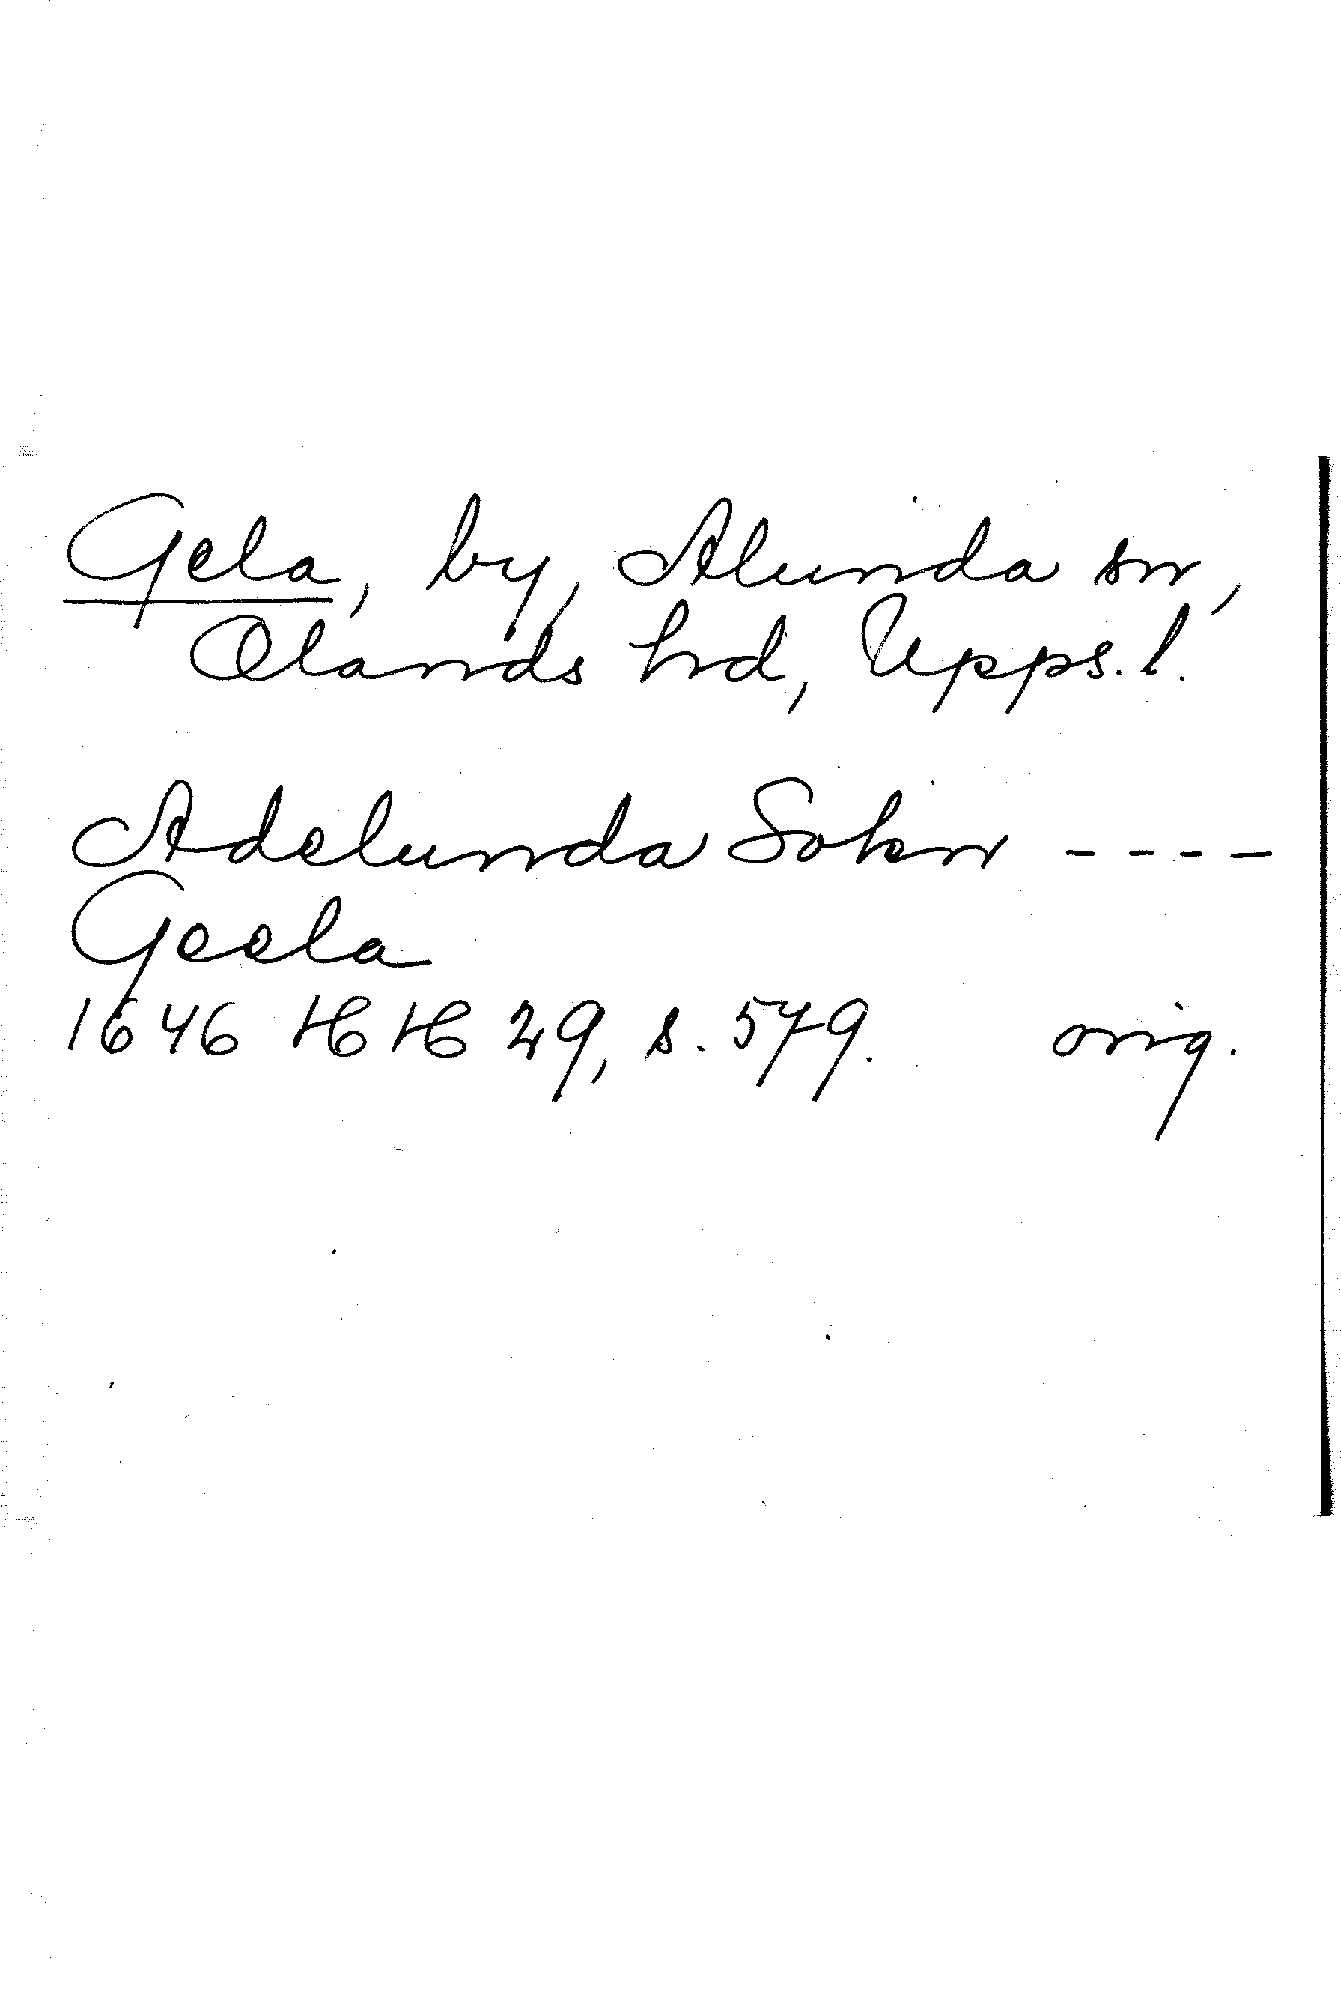 Gela, by, Alunda sn,
Olands hd, Upps. l.
Adelunda Sokn ----
Geela
1646 HH 29, s. 579. orig.